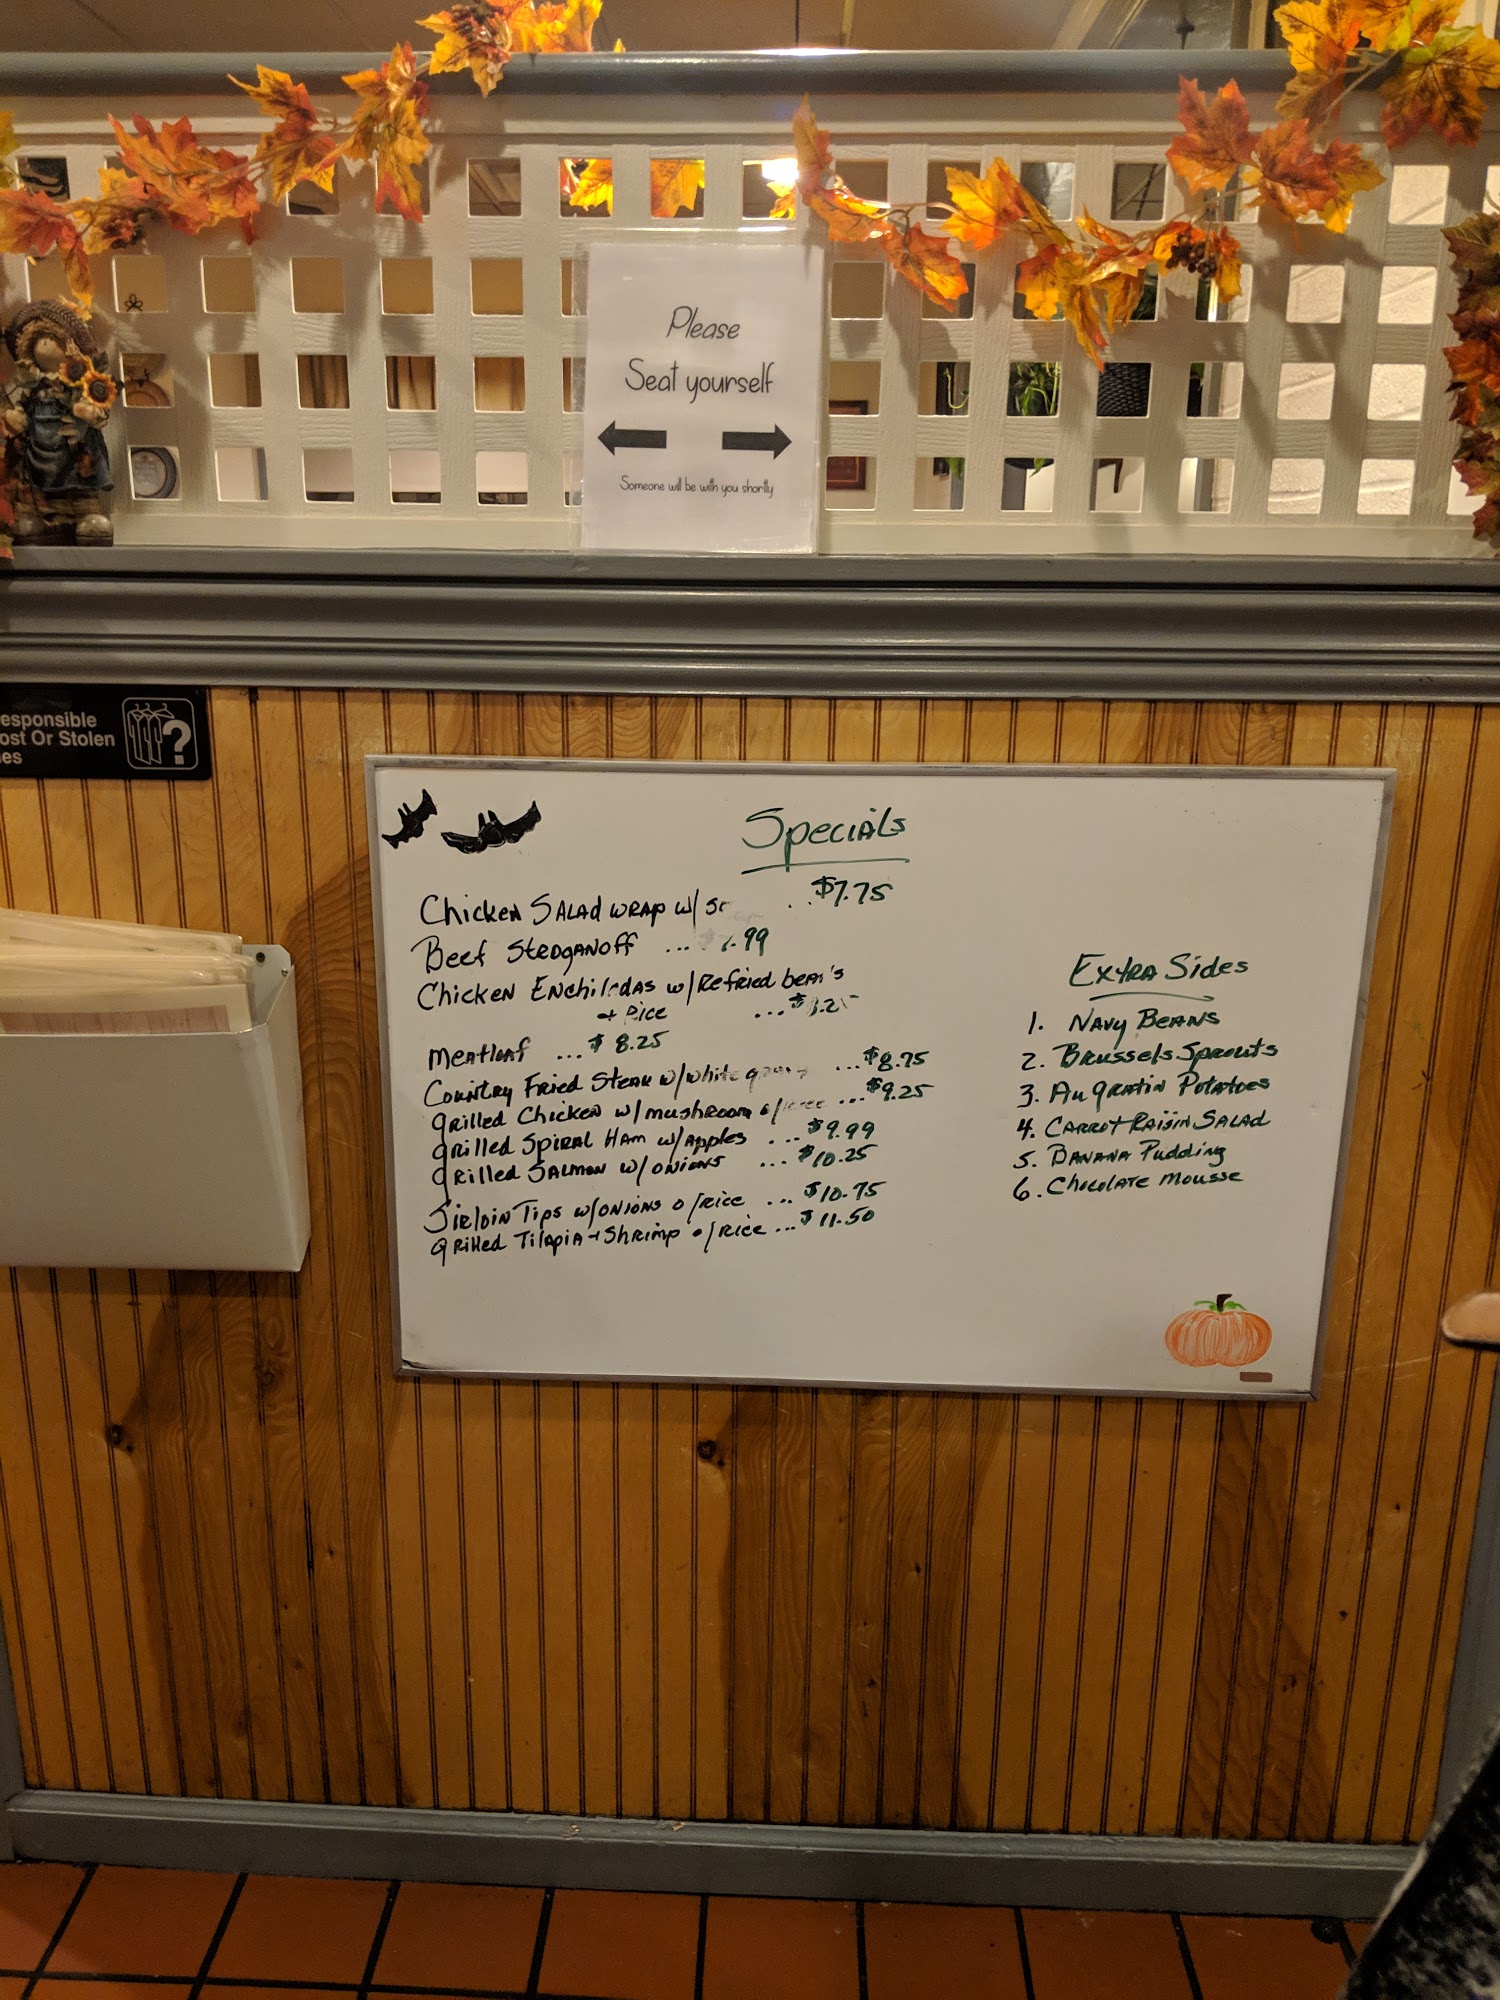 Please
Seat yourself
Someone will be with you shortly
esponsible
ost Or Stolen
es
Specials
Chicken Salad wrap w/ $7.75
Beef Stroganoff ... .99
Chicken Enchiladas w/Refried bean's
+ Rice ...
Meatloaf ... $8.25
Country Fried Steak w/white ... $8.75
grilled Chicken w/mushroom o/rice ... $9.25
grilled Spiral Ham w/apples ... $9.99
grilled Salmon w/onions ... $10.25
Sirloin Tips w/onions o/rice ... $10.75
grilled Tilapia + Shrimp o/rice ... $11.50
Extra Sides
1. Navy Beans
2. Brussels Sprouts
3. Au gratin Potatoes
4. Carrot Raisin Salad
5. Banana Pudding
6. Chocolate Mousse